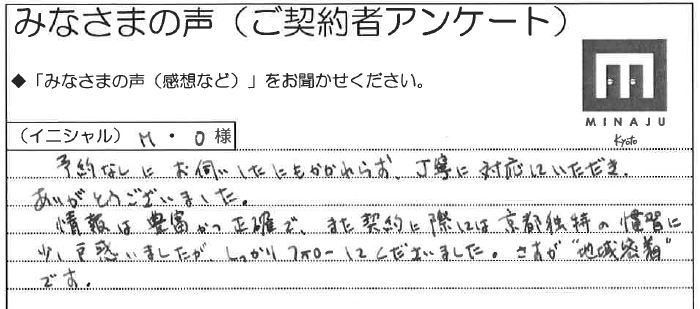 みなさまの声（ご契約者アンケート）
◆「みなさまの声（感想など）」をお聞かせください。
MINAJU
Kyoto
（イニシャル） M ・ O 様
予約なしに お伺いしたにもかかわらず、丁寧に対応していただき、
ありがとうございました。
情報は豊富かつ正確で、また契約に際しては京都独特の慣習に
少し戸惑いましたが、しっかりフォローしてくださいました。さすが"地域密着"
です。